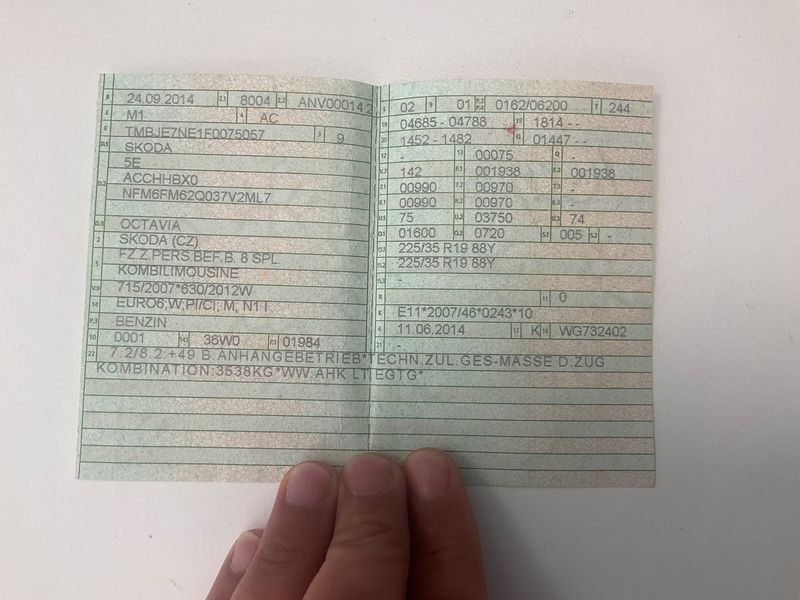 B 24.09.2014 2.1 8004 2.2 ANV000142
J M1 4 AC
E TMBJE7NE1F0075057 3 9
D.1 SKODA
5E
D.2 ACCHHBX0
NFM6FM62Q037V2ML7
D.3 OCTAVIA
2 SKODA (CZ)
5 FZ.Z.PERS.BEF.B. 8 SPL
KOMBILIMOUSINE
V.9 715/2007*630/2012W
14 EURO6;W,PI/CI; M, N1 I
P.3 BENZIN
10 0001 14.1 36W0 P.1 01984
L 02 9 01 P.2 P.4 0162/06200 T 244
18 04685 - 04788 19 1814 - -
20 1452 - 1482 G 01447 - -
12 - 13 00075 Q -
V.7 142 F.1 001938 F.2 001938
7.1 00990 7.2 00970 7.3 -
8.1 00990 8.2 00970 8.3 -
U.1 75 U.2 03750 U.3 74
O.1 01600 O.2 0720 S.1 005 S.2 -
15.1 225/35 R19 88Y
15.2 225/35 R19 88Y
15.3 -
R - 11 0
K E11*2007/46*0243*10
6 11.06.2014 17 K 16 WG732402
21 -
22 7.2/8.2:+49 B.ANHANGEBETRIEB*TECHN.ZUL.GES-MASSE D.ZUG
KOMBINATION:3538KG*WW.AHK LTEGTG*